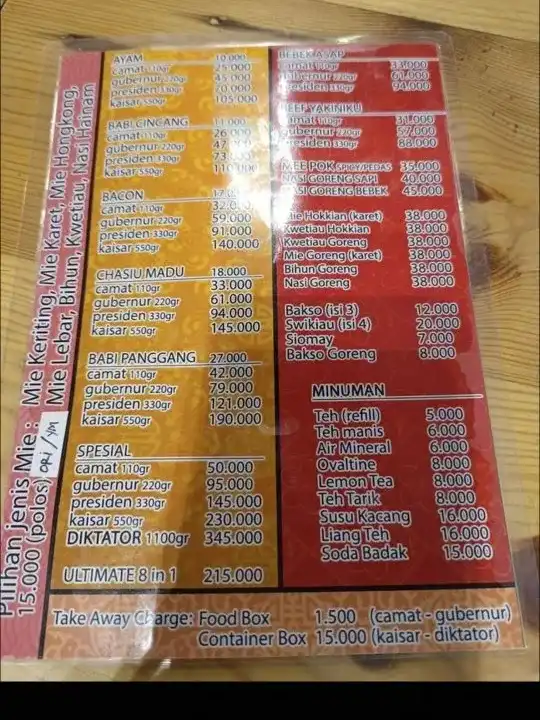 Pilihan jenis Mie : Mie Keriting, Mie Karet, Mie Hongkong,
15.000 (polos) ORI / YM Mie Lebar, Bihun, Kwetiau, Nasi Hainam
AYAM 10.000
camat 110gr 25.000
gubernur 220gr 45.000
presiden 330gr 70.000
kaisar 550gr 105.000
BABI CINCANG 11.000
camat 110gr 26.000
gubernur 220gr 47.000
presiden 330gr 73.000
kaisar 550gr 110.000
BACON 17.000
camat 110gr 32.000
gubernur 220gr 59.000
presiden 330gr 91.000
kaisar 550gr 140.000
CHASIU MADU 18.000
camat 110gr 33.000
gubernur 220gr 61.000
presiden 330gr 94.000
kaisar 550gr 145.000
BABI PANGGANG 27.000
camat 110gr 42.000
gubernur 220gr 79.000
presiden 330gr 121.000
kaisar 550gr 190.000
SPESIAL
camat 110gr 50.000
gubernur 220gr 95.000
presiden 330gr 145.000
kaisar 550gr 230.000
DIKTATOR 1100gr 345.000
ULTIMATE 8 in 1 215.000
BEBEK ASAP
camat 110gr 33.000
gubernur 220gr 61.000
presiden 330gr 94.000
BEEF YAKINIKU
camat 110gr 31.000
gubernur 220gr 57.000
presiden 330gr 88.000
MEE POK SPICY/PEDAS 35.000
NASI GORENG SAPI 40.000
NASI GORENG BEBEK 45.000
Mie Hokkian (karet) 38.000
Kwetiau Hokkian 38.000
Kwetiau Goreng 38.000
Mie Goreng (karet) 38.000
Bihun Goreng 38.000
Nasi Goreng 38.000
Bakso (isi 3) 12.000
Swikiau (isi 4) 20.000
Siomay 7.000
Bakso Goreng 8.000
MINUMAN
Teh (refill) 5.000
Teh manis 6.000
Air Mineral 6.000
Ovaltine 8.000
Lemon Tea 8.000
Teh Tarik 8.000
Susu Kacang 16.000
Liang Teh 16.000
Soda Badak 15.000
Take Away Charge: Food Box 1.500 (camat - gubernur)
Container Box 15.000 (kaisar - diktator)